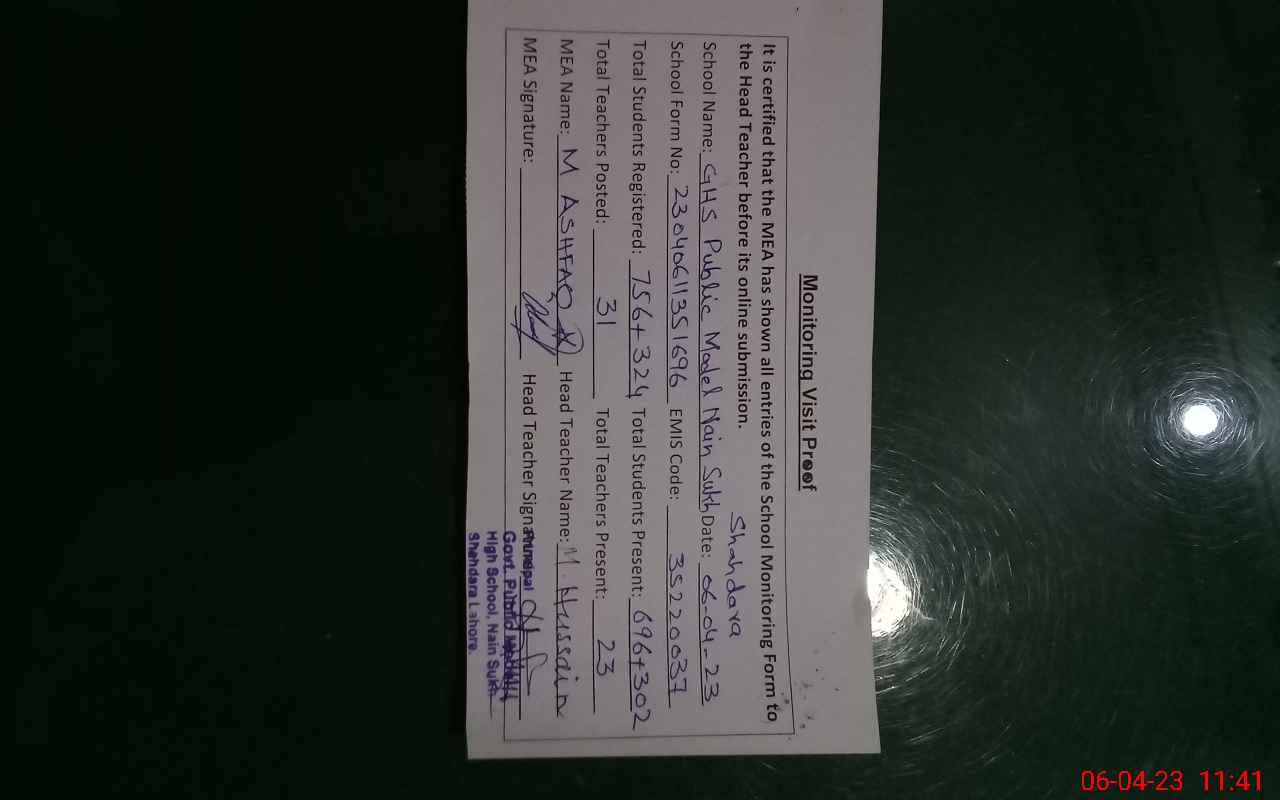 Monitoring Visit Proof
It is certified that the MEA has shown all entries of the School Monitoring Form to
the Head Teacher before its online submission.
Shahdara
School Name: GHS Public Model Nain Sukh Date: 06-04-23
School Form No: 23040611351696 EMIS Code: 35220037
Total Students Registered: 756+324 Total Students Present: 696+302
Total Teachers Posted: 31 Total Teachers Present: 23
MEA Name: M ASHFAQ Head Teacher Name: M. Hussain
MEA Signature: Head Teacher Signature:
Principal
Govt. Public Model
High School, Nain Sukh
Shahdara Lahore.
06-04-23 11:41